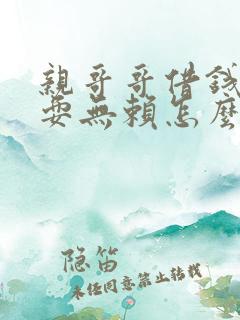 親哥哥借錢
耍無賴怎麼
隐笛
未任同意禁止转载